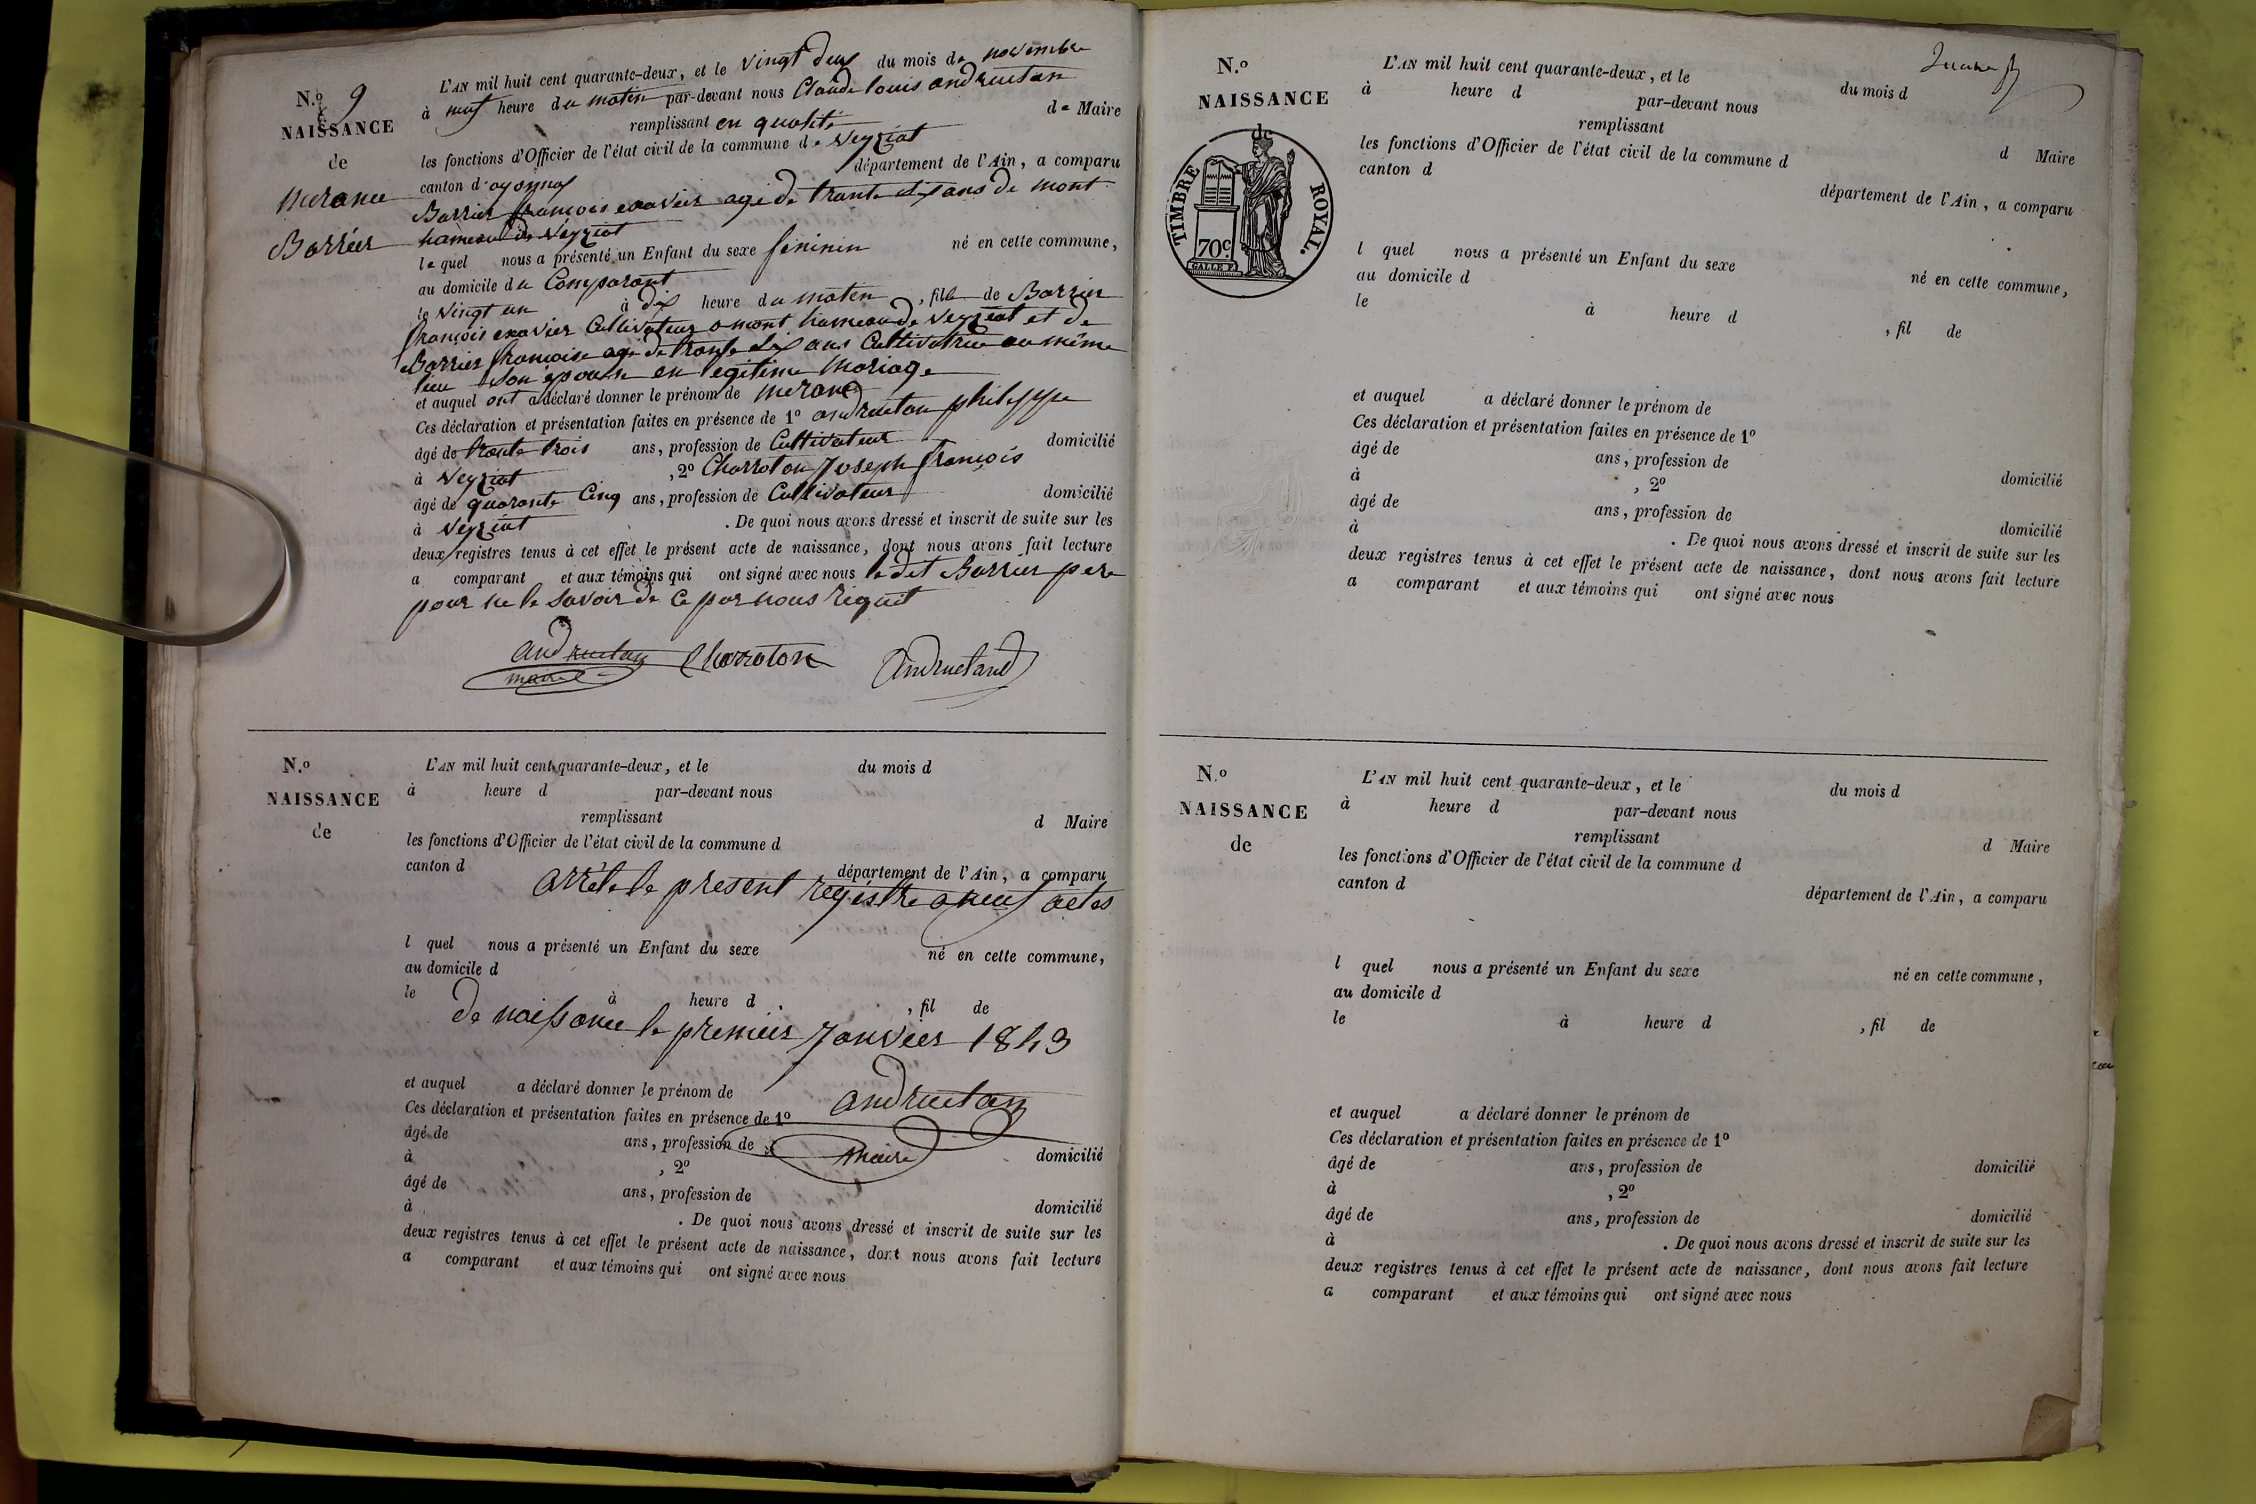 N.º 9
NAISSANCE
de
Merance
Barrier
L'AN mil huit cent quarante-deux, et le vingt deux du mois de novembre
à neuf heure du maten par-devant nous Claude louis andruetan
remplissant en qualité de Maire
les fonctions d'Officier de l'état civil de la commune de Veyziat
canton d'oyonnax département de l'Ain, a comparu
Barrier françois exavier agé de trante six ans de mont
hameau de Veyziat
le quel nous a présenté un Enfant du sexe féminin né en cette commune,
au domicile du Comparant
le vingt un à dix heure du maten, fille de Barrier
françois exavier Cultivateur a mont hameau de Veyziat et de
Barrier françoise agé de trante six ans Cultivatrice au même
lieu son épouse en légitime Mariage
et auquel ont a déclaré donner le prénom de Merance
Ces déclaration et présentation faites en présence de 1º andruetan philippe
âgé de trante trois ans, profession de Cultivateur domicilié
à Veyziat, 2º Charroton Joseph françois
âgé de quarante Cinq ans, profession de Cultivateur domicilié
à Veyziat. De quoi nous avons dressé et inscrit de suite sur les
deux registres tenus à cet effet le présent acte de naissance, dont nous avons fait lecture
a comparant et aux témoins qui ont signé avec nous le dit Barrier pere
pour ne le savoir de ce par nous requit
andruetan Charroton Andruetand
maire
N.º
NAISSANCE
de
L'AN mil huit cent quarante-deux, et le du mois d
à heure d par-devant nous
remplissant d Maire
les fonctions d'Officier de l'état civil de la commune d
canton d département de l'Ain, a comparu
arrêté le present registre a neuf actes
l quel nous a présenté un Enfant du sexe né en cette commune,
au domicile d
le à heure d, fil de
de naissance le premier Janvier 1843
et auquel a déclaré donner le prénom de
andruetan
Ces déclaration et présentation faites en présence de 1º
âgé de ans, profession de domicilié
maire
à, 2º
âgé de ans, profession de domicilié
à. De quoi nous avons dressé et inscrit de suite sur les
deux registres tenus à cet effet le présent acte de naissance, dont nous avons fait lecture
a comparant et aux témoins qui ont signé avec nous
N.º
NAISSANCE
TIMBRE ROYAL.
70c.
L'AN mil huit cent quarante-deux, et le du mois d
à heure d par-devant nous
remplissant d Maire
les fonctions d'Officier de l'état civil de la commune d
canton d département de l'Ain, a comparu
l quel nous a présenté un Enfant du sexe né en cette commune,
au domicile d
le à heure d, fil de
et auquel a déclaré donner le prénom de
Ces déclaration et présentation faites en présence de 1º
âgé de ans, profession de domicilié
à, 2º
âgé de ans, profession de domicilié
à. De quoi nous avons dressé et inscrit de suite sur les
deux registres tenus à cet effet le présent acte de naissance, dont nous avons fait lecture
a comparant et aux témoins qui ont signé avec nous
N.º
NAISSANCE
de
L'AN mil huit cent quarante-deux, et le du mois d
à heure d par-devant nous
remplissant d Maire
les fonctions d'Officier de l'état civil de la commune d
canton d département de l'Ain, a comparu
l quel nous a présenté un Enfant du sexe né en cette commune,
au domicile d
le à heure d, fil de
et auquel a déclaré donner le prénom de
Ces déclaration et présentation faites en présence de 1º
âgé de ans, profession de domicilié
à, 2º
âgé de ans, profession de domicilié
à. De quoi nous avons dressé et inscrit de suite sur les
deux registres tenus à cet effet le présent acte de naissance, dont nous avons fait lecture
a comparant et aux témoins qui ont signé avec nous